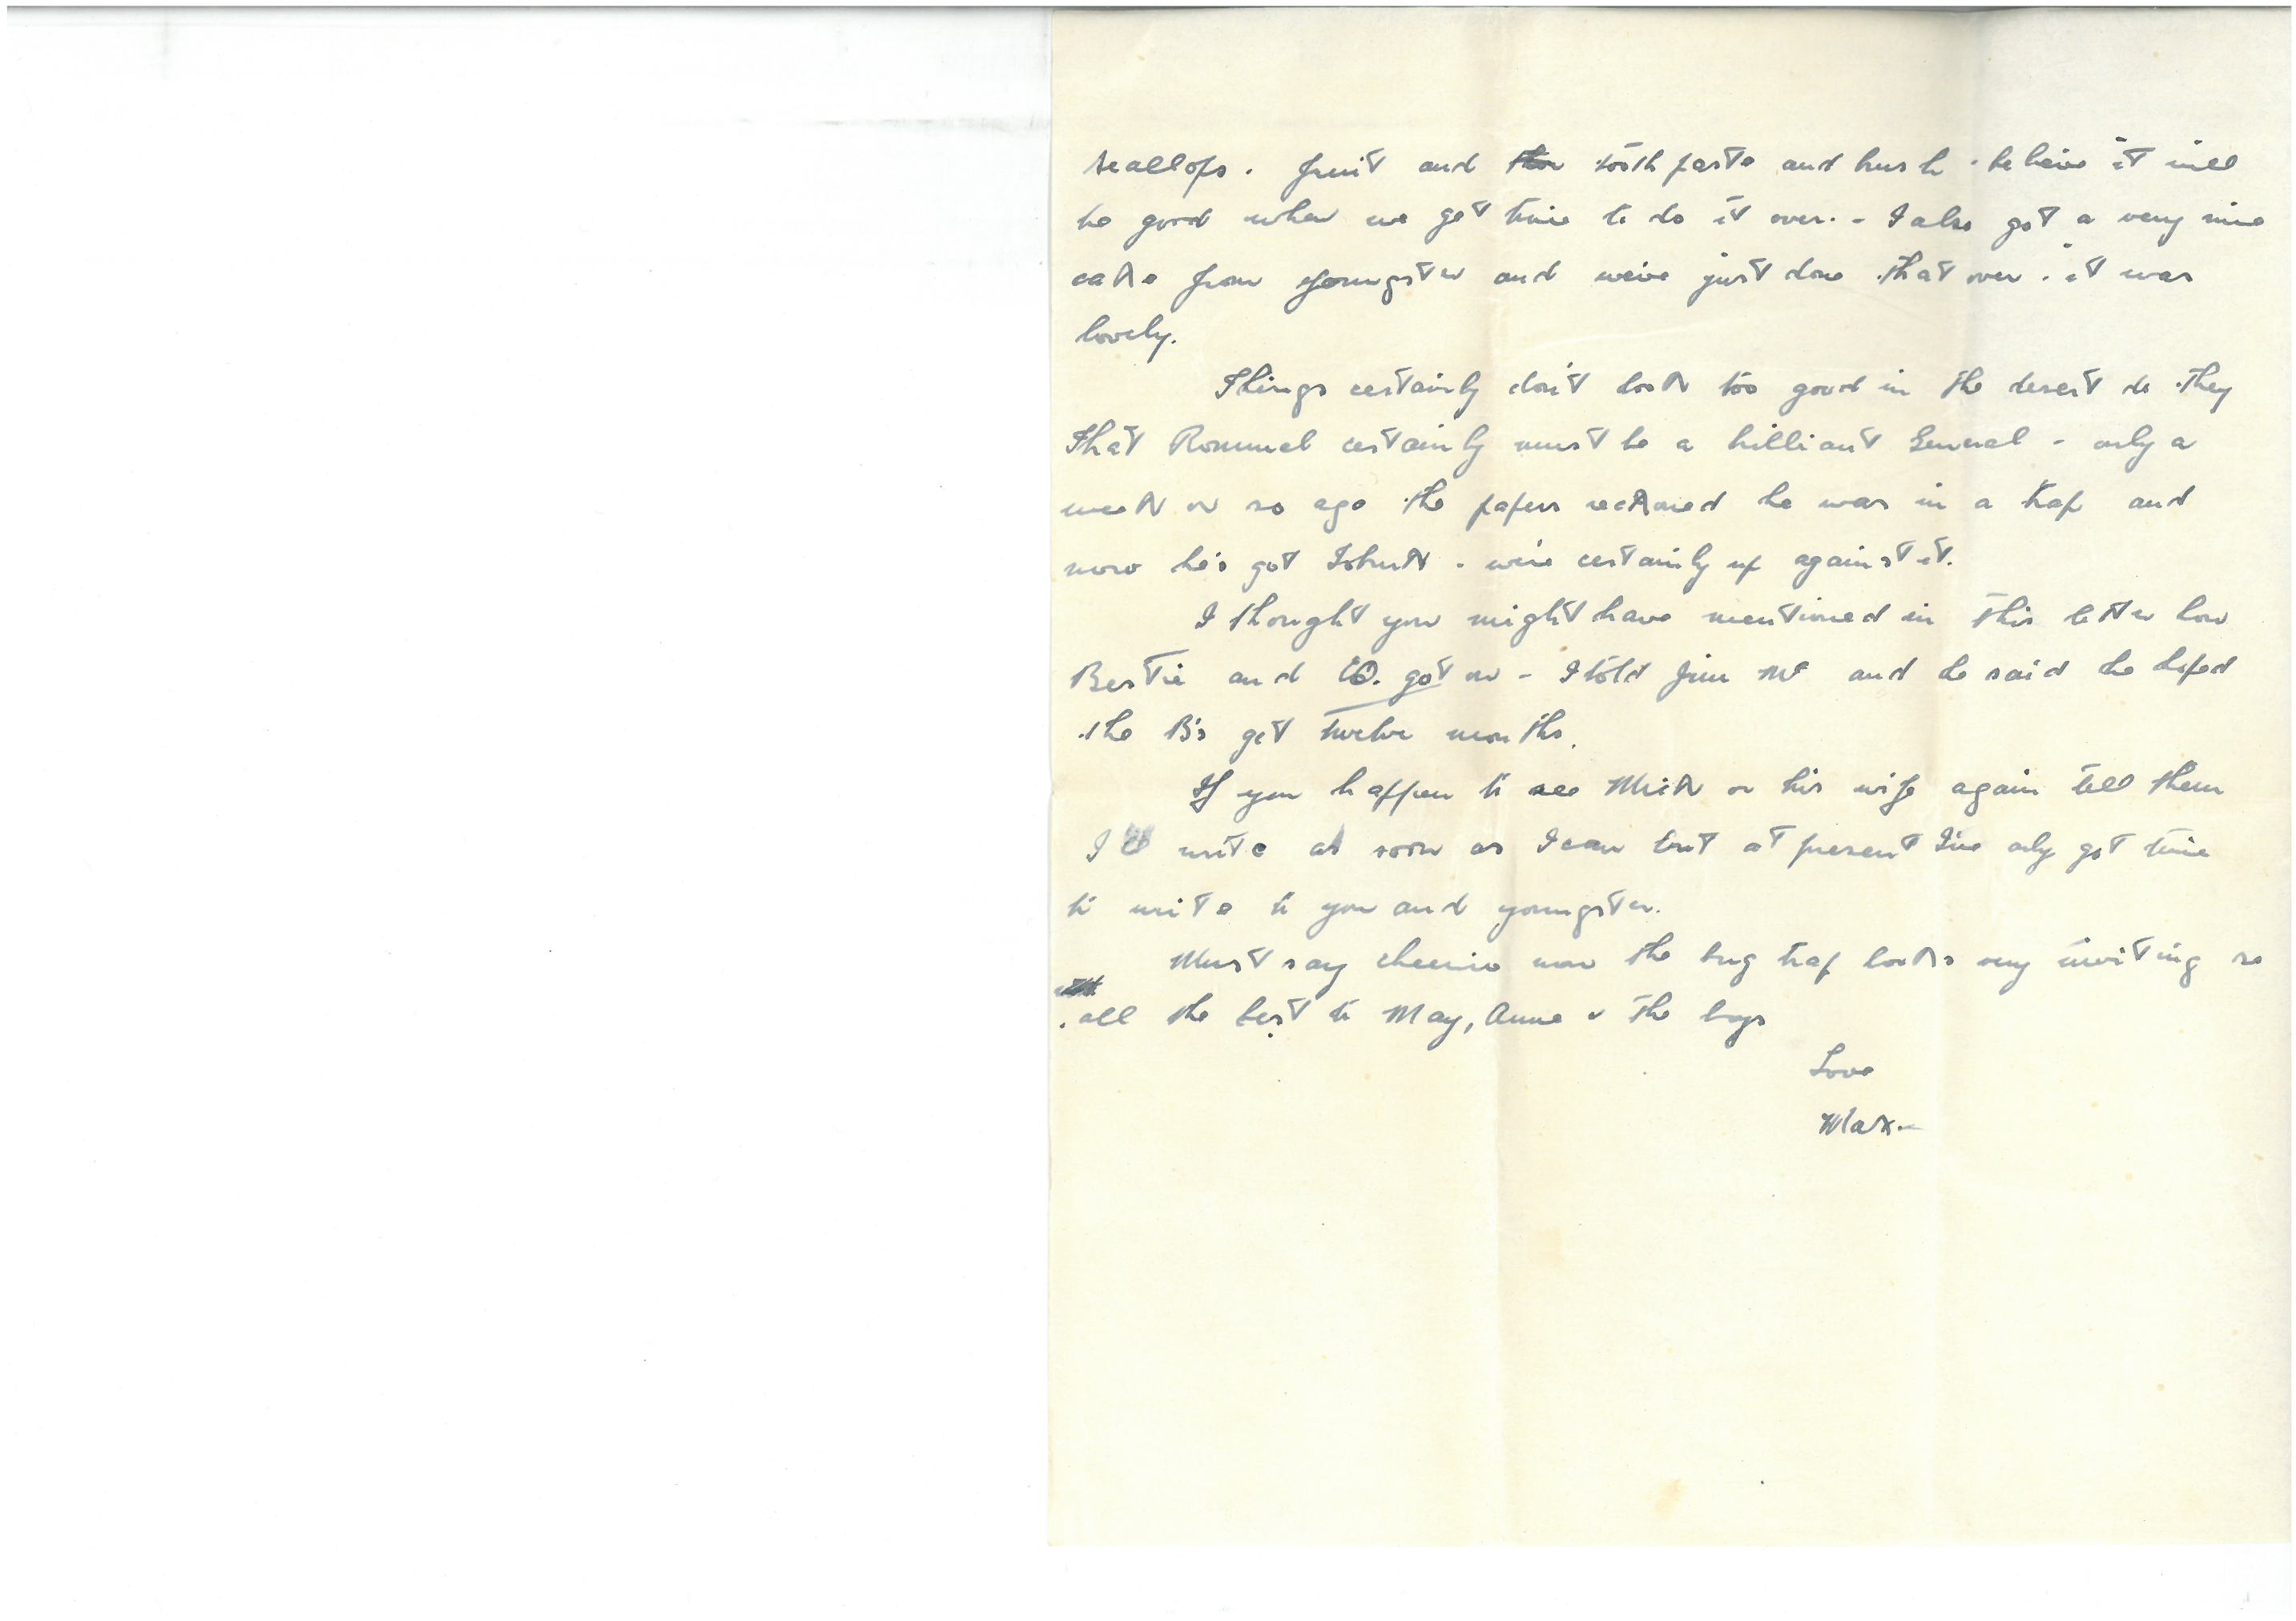 scallops. fruit and tooth paste and brush - believe it will
be good when we get time to do it over. - I also got a very nice
cake from youngster and we've just done that over. it was
lovely.
Things certainly don't look too good in the desert do they
that Rommel certainly must be a brilliant General - only a
week or so ago the papers reckoned he was in a trap and
now he's got Tobruk - we're certainly up against it.
I thought you might have mentioned in this letter how
Bestie and Co. got on - I told Jim Mc and he said he hoped
the B's get twelve months.
If you happen to see Mick or his wife again tell them
I'll write as soon as I can but at present I've only got time
to write to you and youngster.
Must say cheerio now the bug trap looks very inviting so
all the best to May, Anne & the boys
Love
Max